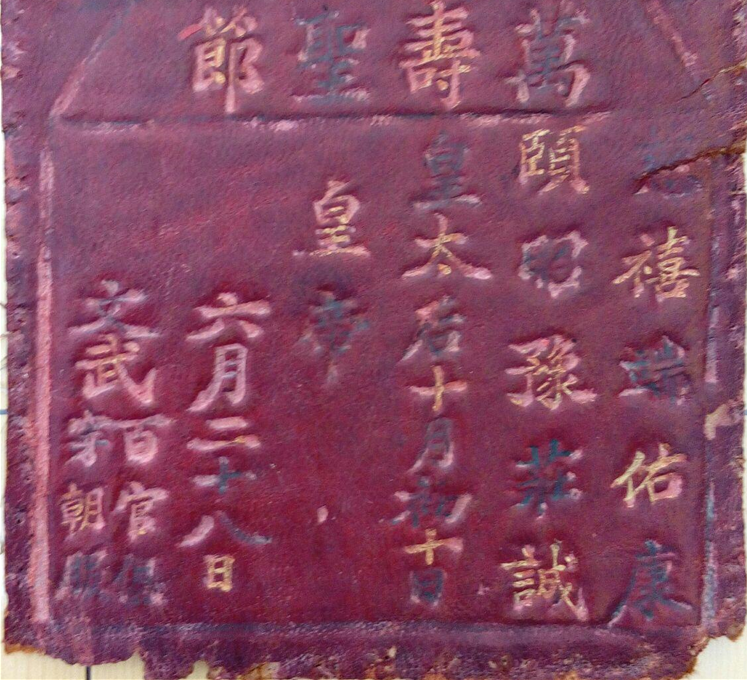 萬壽聖節
慈禧端佑康
頤昭豫莊誠
皇太后十月初十日
皇帝
六月二十八日
文武百官俱穿朝服